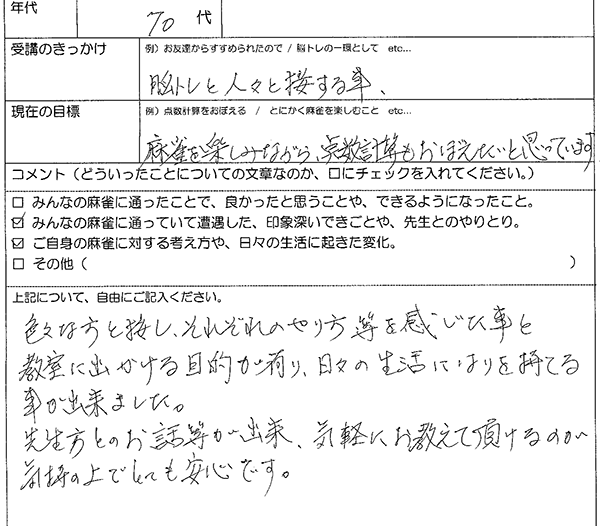 年代 70 代
受講のきっかけ 例）お友達からすすめられたので / 脳トレの一環として etc...
脳トレと人々と接する事、
現在の目標 例）点数計算をおぼえる / とにかく麻雀を楽しむこと etc...
麻雀を楽しみながら、点数計算もおぼえたいと思っています
コメント（どういったことについての文章なのか、口にチェックを入れてください。）
□ みんなの麻雀に通ったことで、良かったと思うことや、できるようになったこと。
☑ みんなの麻雀に通っていて遭遇した、印象深いできごとや、先生とのやりとり。
☑ ご自身の麻雀に対する考え方や、日々の生活に起きた変化。
□ その他（ ）
上記について、自由にご記入ください。
色々な方と接し、それぞれのやり方等を感じた事と
教室に出かける目的が有り、日々の生活にはりを持てる
事が出来ました。
先生方とのお話等が出来、気軽にお教えて頂けるのが
気持の上でとても安心です。